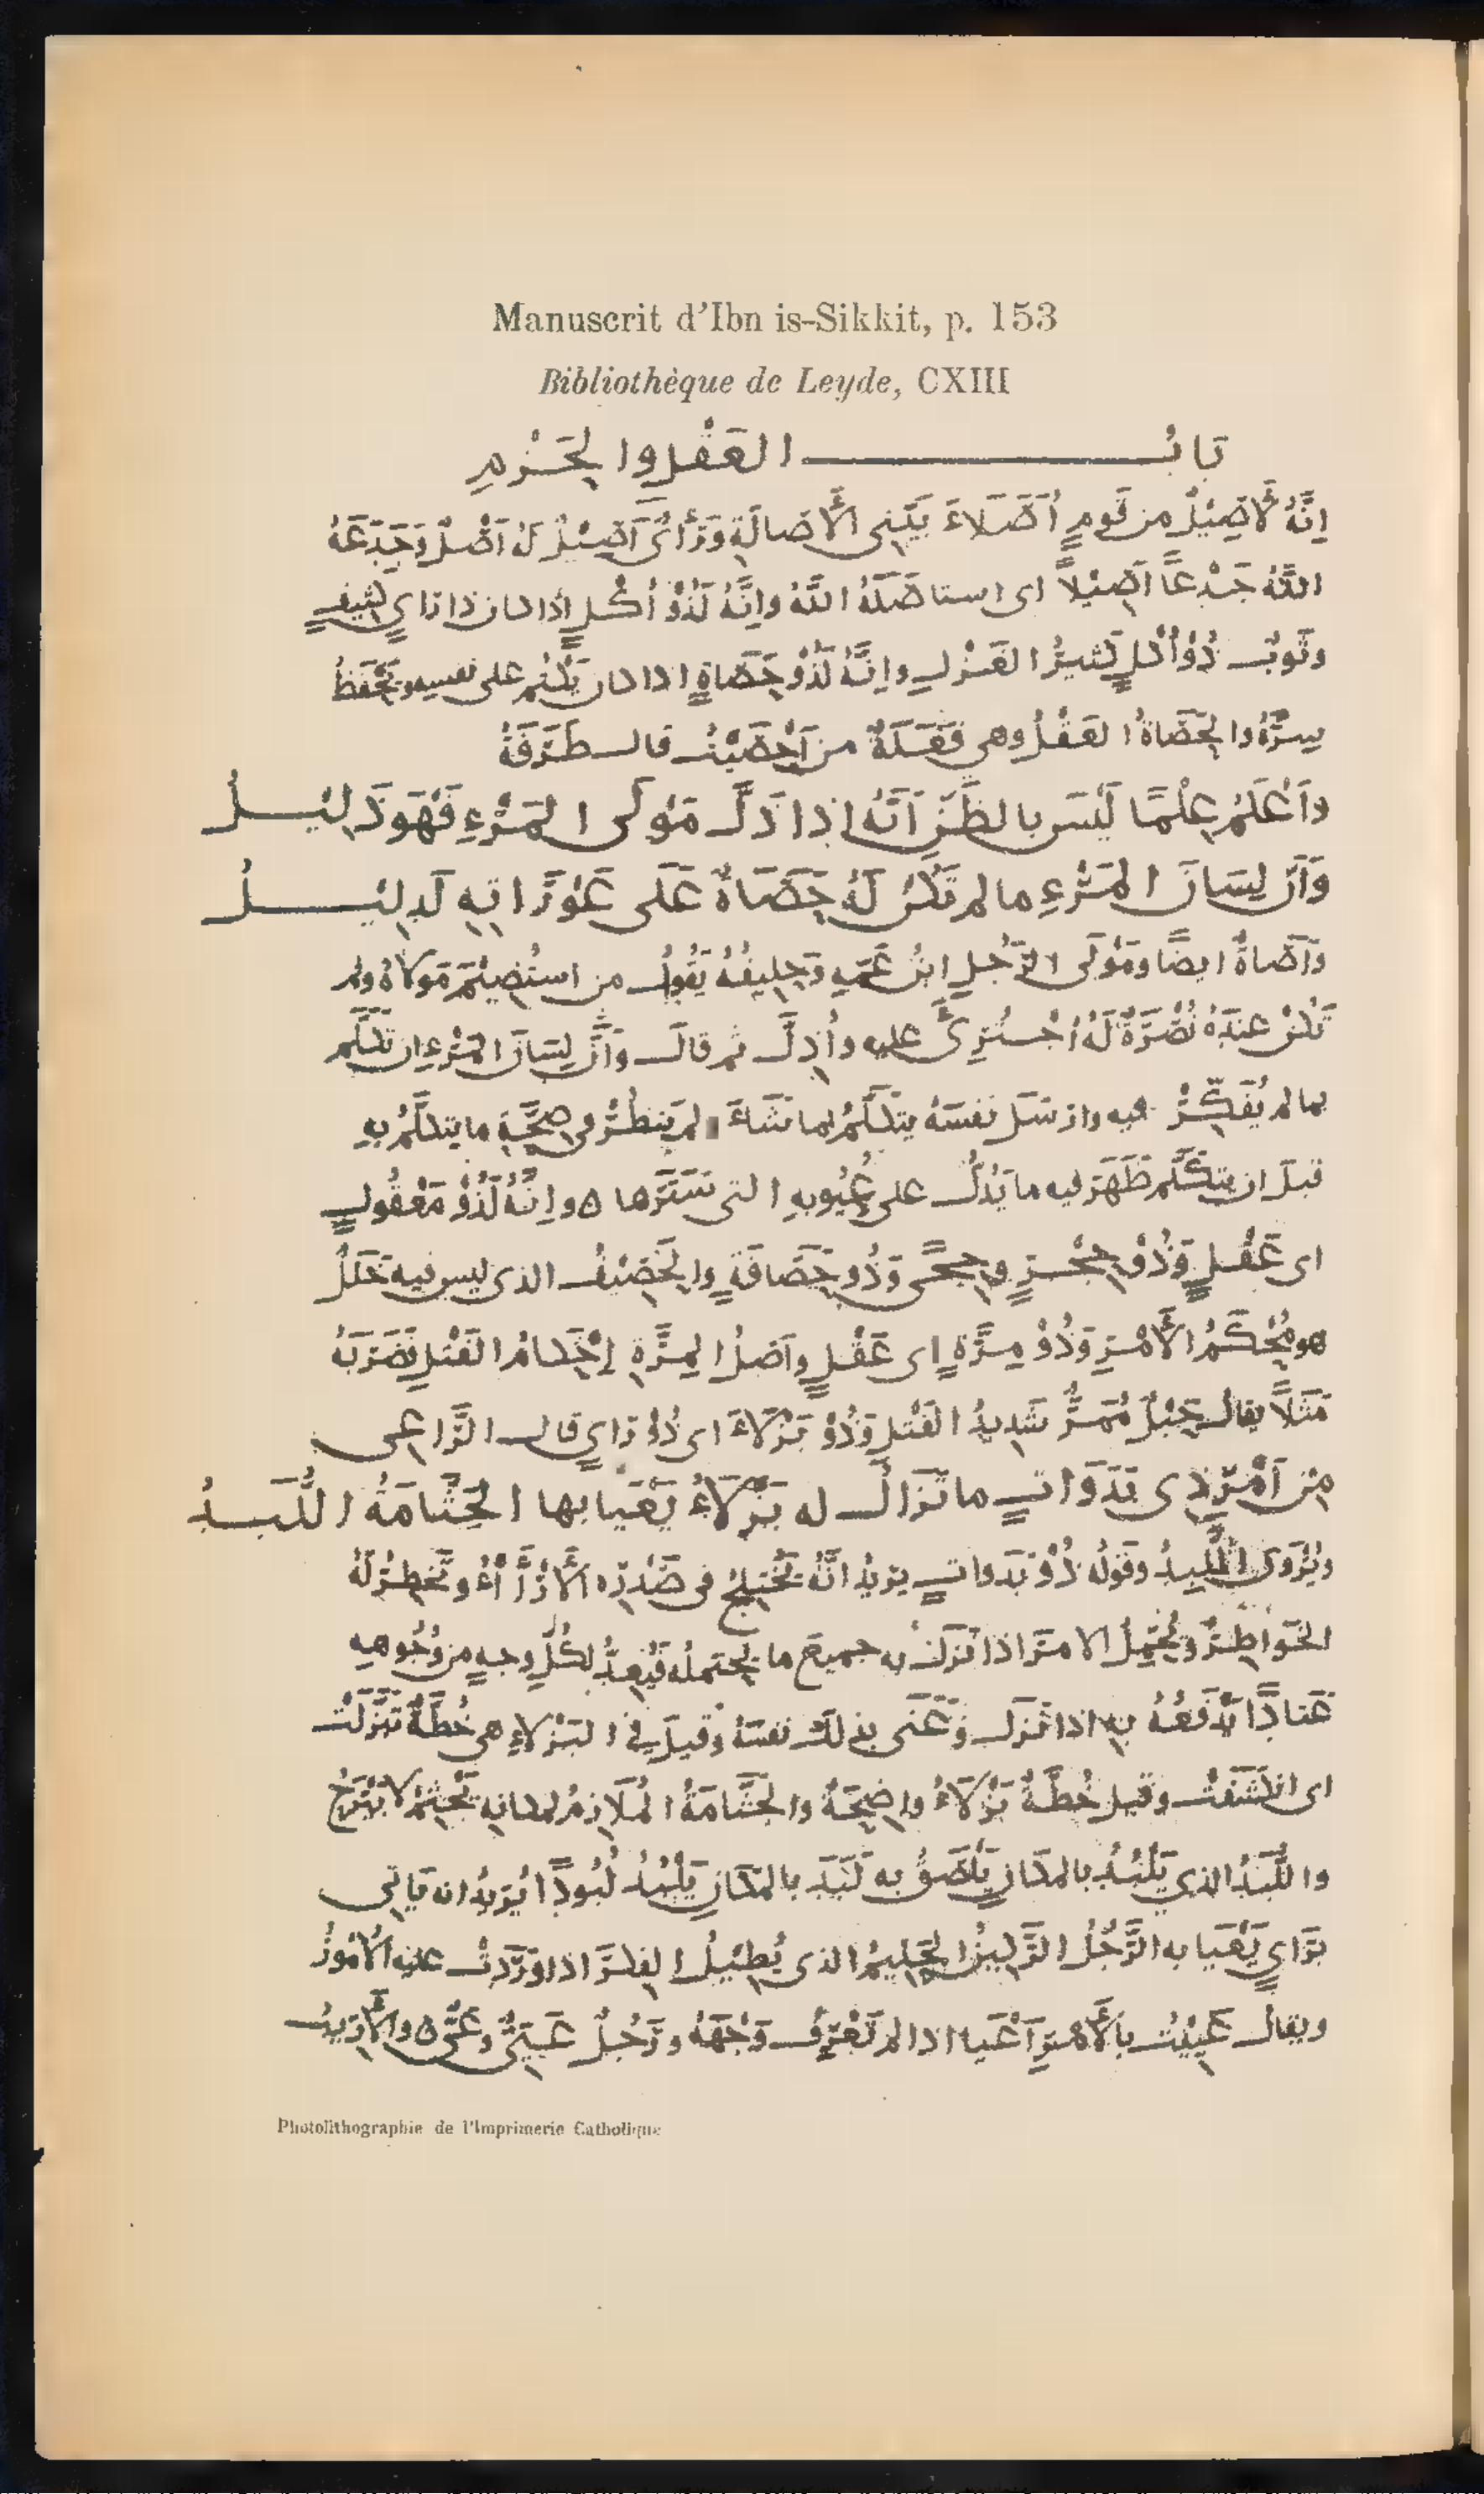 Manuscrit d'Ibn is-Sikkit, p. 153
Bibliothèque de Leyde, CXIII
بَابُ العَقْلِ والحَزْمِ
اِنَّهُ لَأَصِيْلٌ من قَومٍ اُصَلَاءَ بَيِّنِى الأَصالَةِ وَرَأىٌ اَصِيْلٌ لهُ اَصْلٌ وَجَدَعَهُ
اللَّهُ جَدْعًا اَصِيْلاً اى استاصَلَهُ اللَّهُ وانَّهُ لَذُوْ اُكْلٍ اذا كان ذا رَايٍ كثيفٍ
وثَوبٌ ذُوْ اُكْلٍ كثيرُ الغَزْلِ واِنَّهُ لَذُوْ حَصَاةٍ اذا كان يَكْتُم على نفسِهِ ويَحْفَظُ
سِرَّهُ والحَصَاةُ العَقْلُ وهى فَعَلَةٌ من اَحْصَيْتُ قال طَرَفَةُ
وَاَعْلَمُ عِلْمًا لَيْسَ بالظَنِّ اَنَّهُ اذا ذَلَّ مَوْلَى المَرْءِ فَهْوَ ذَلِيْلُ
وَاَنَّ لِسَانَ المَرْءِ ما لم تَكُنْ لَهُ حَصَاةٌ عَلَى عَوْرَاتِهِ لَدلِيْلُ
وَاَصَاةٌ ايضًا ومَوْلَى الرَّجُلِ ابنُ عَمِّهِ وَحليفُهُ يَقُولُ من استُضِيْمَ مَولاهُ ولم
تَكُنْ عندَهُ نُصْرَةٌ لَهُ اُجْتُرِئَ عليه واُذِلَّ ثم قالَ وَاَنَّ لِسَانَ المَرْءِ ان تَكَلَّم
بما لم يُفَكِّرْ فيه وارسَلَ نفسَهُ يتكَلَّمُ بما تَشَاءُ ولم يَنظُرْ فى صِحَّةِ ما يتكلَّمُ بهِ
قبلَ ان يتكَلَّم ظَهَرَ فيه ما يَدُلُّ على عُيُوبِهِ التى سَتَرَها ه واِنَّهُ لَذُوْ مَعْقُولٍ
اى عَقْلٍ وَذُوْ حِجْرٍ وحِجًى وَذُو حَصَافَةٍ والحَصِيْفُ الذى ليس فيه خَلَلٌ
هو مُحْكَمُ الأَمْرِ وَذُوْ مِرَّةٍ اى عَقْلٍ واَصْلُ المِرَّةِ اِحْكامُ الفَتْلِ فضَرَبَهُ
مَثَلاً يقال حَبْلٌ مُمَرٌّ شَدِيدُ الفَتْلِ وَذُوْ بَزْلَاءَ اى ذُوْ رَايٍ قال الرَّاعى
مِنْ اَمْرِ ذِى بَدَوَاتٍ ما تَزَالُ له بَزْلَاءُ يَعْيَا بها الجَثَّامَةُ اللُّبَدُ
ويُرْوَى اللَّبِدُ وقولُه ذُوْ بَدَواتٍ يريدُ انَّهُ تَخْتَلِجُ فى صَدْرِه الأَرْاءُ وتَخطِرُ لَهُ
الخَواطِرُ ويُجيلُ الامرَ اذا نَزَلَ به جميعَ ما يحتملُه فيُعِدُّ لِكُلِّ وجهٍ من وُجُوهِهِ
عَتادًا يَدْفَعُهُ بِهِ اذا نَزَلَ وَعَنَى بذلك نفسَهُ وقيلَ في البَزْلاءِ هى خُطَّةٌ تَبَزَّلَتْ
اى انكَشَفَتْ وقيل خُطَّةٌ بَزْلَاءُ واضِحَةٌ والجَثَّامَةُ المُلَازِمُ لمكانِهِ يَجْثِمُ لا يَبْرَحُ
واللُّبَدُ الذي يَلْبُدُ بالمكَانِ يَلْصَقُ به لَبَدَ بالمكَانِ يَلْبُدُ لُبُودًا يُريدُ انه يَأتى
برَايٍ يَعْيَا به الرَّجُلُ الرَّكِيزُ الحَلِيمُ الذى يُطِيْلُ الفِكْرَ اذا وَرَدَتْ عليهِ الأُمُورُ
ويقال عَيِيْتُ بِالأَمْرِ اَعْيا اذا لم تَعْرِفْ وَجْهَهُ ورَجُلٌ عَيِيٌّ وعَىٌّ ه والأَرِيبُ
Photolithographie de l'Imprimerie Catholique